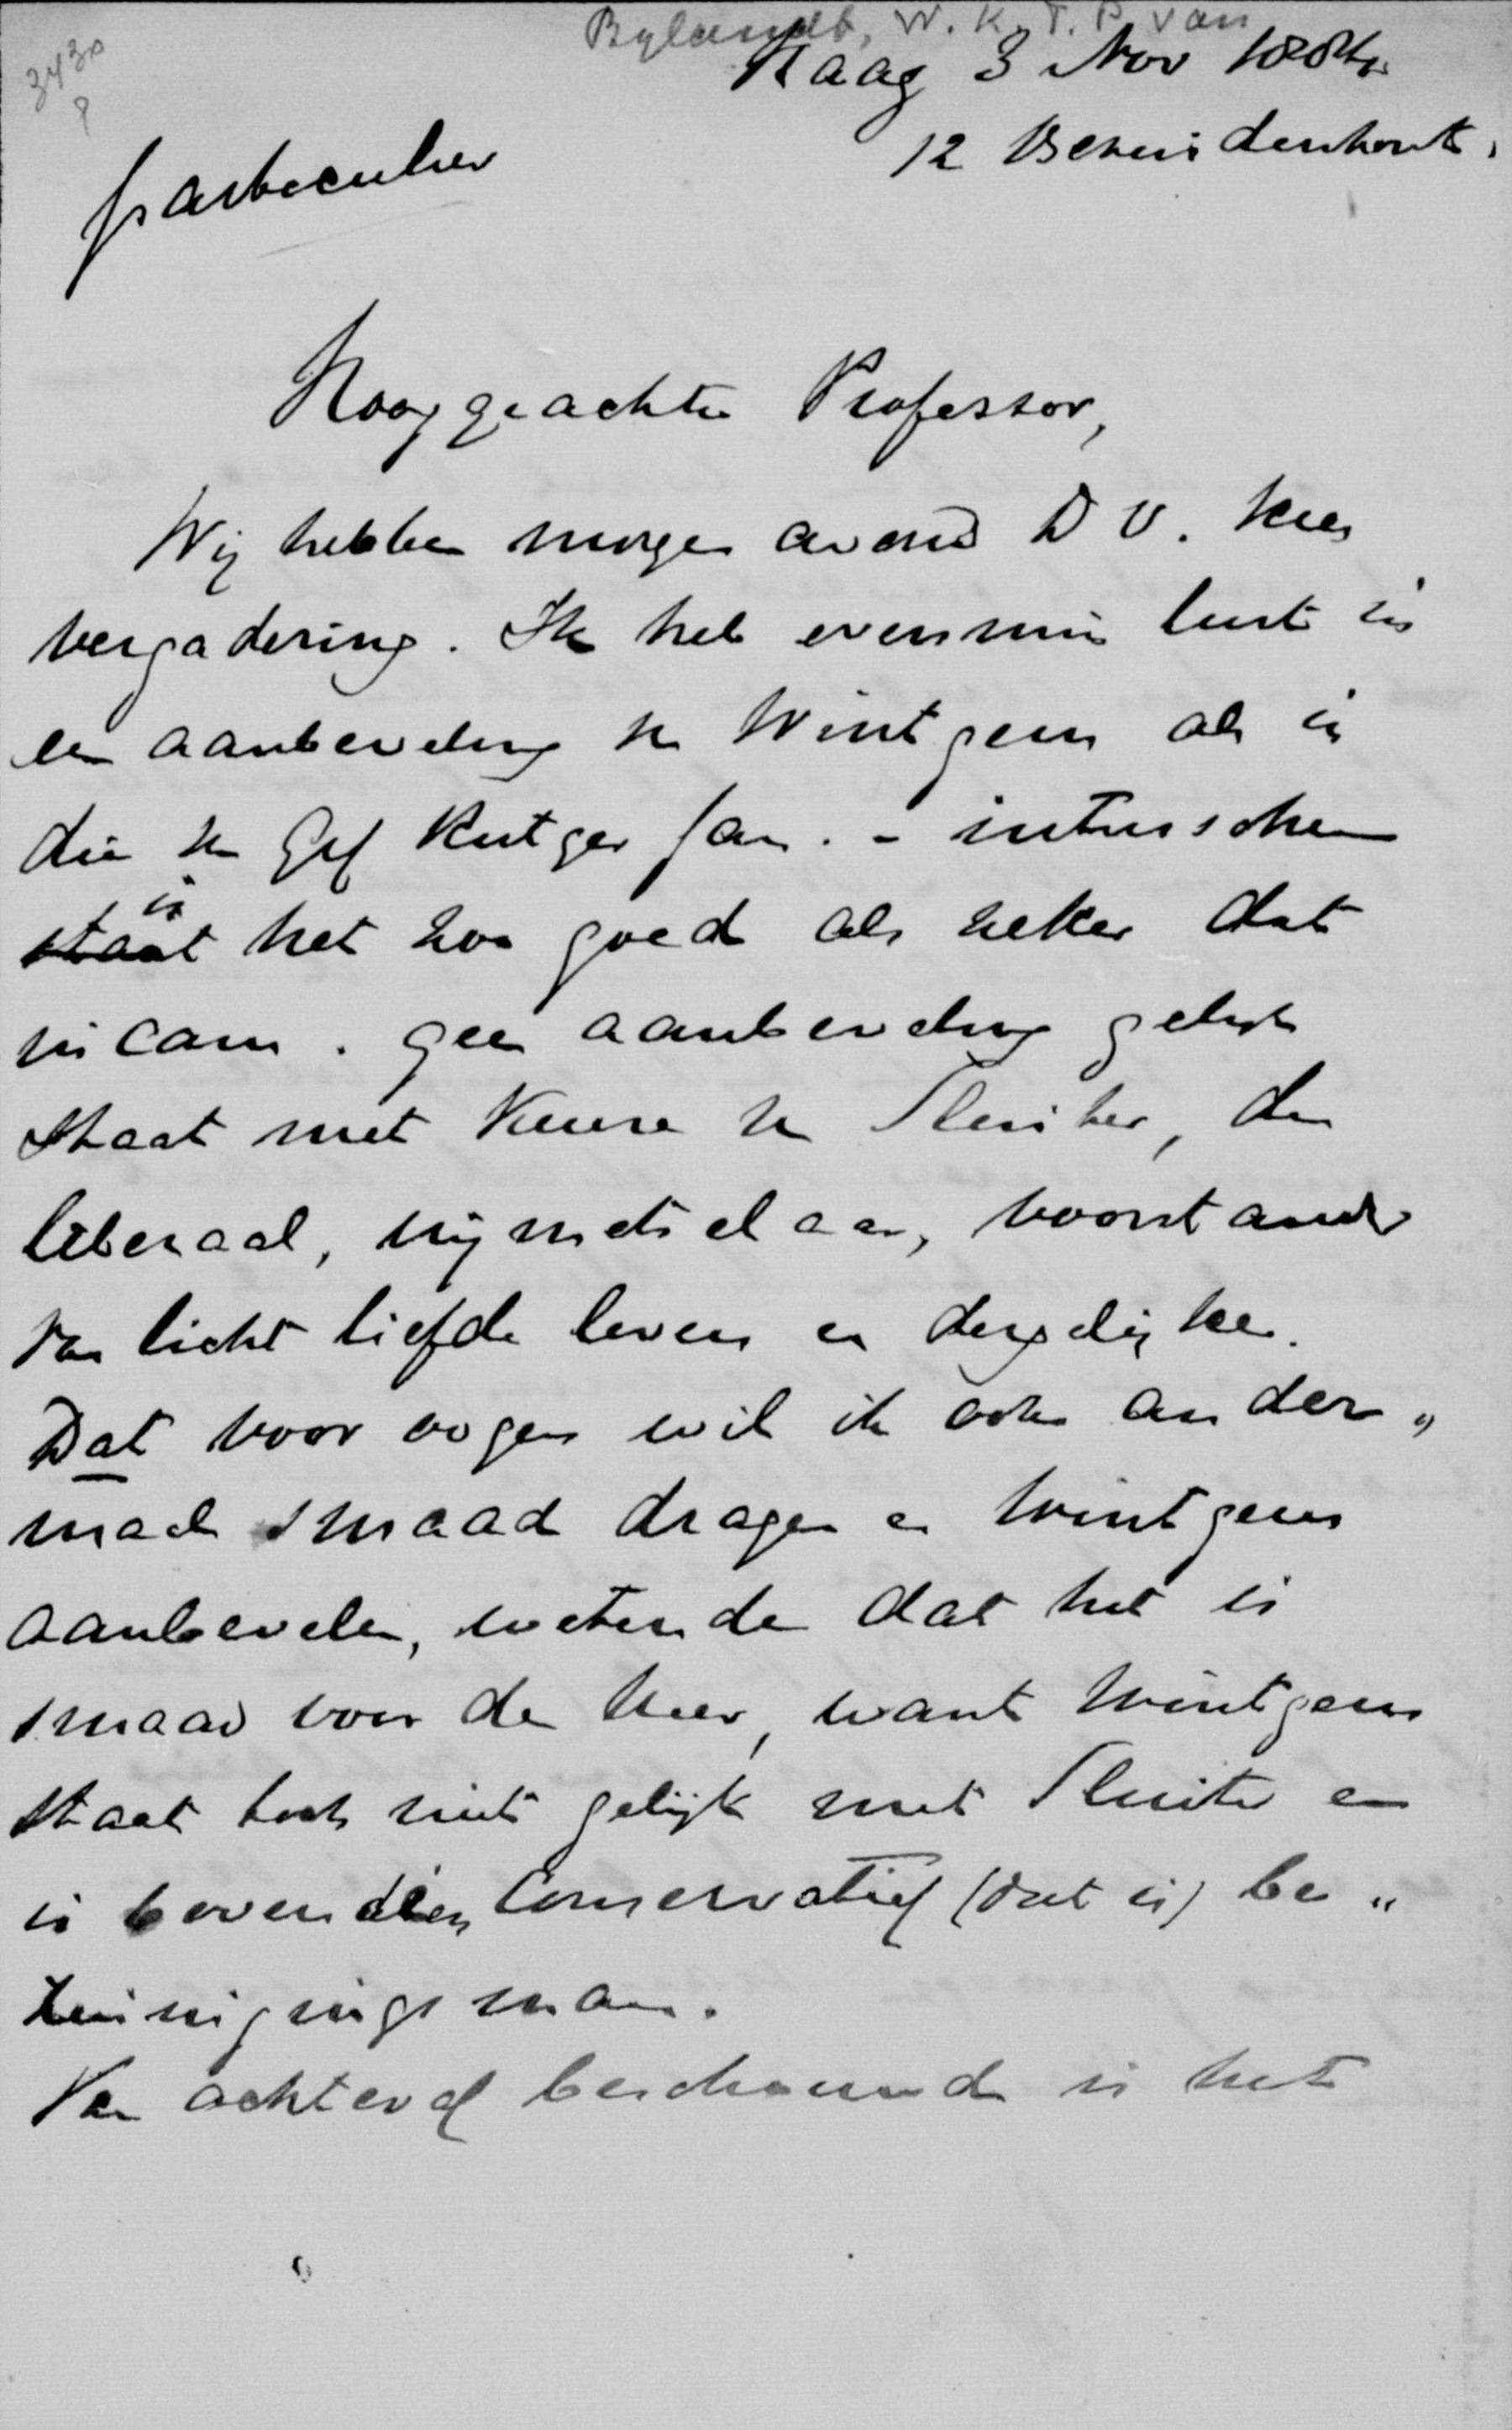 3430
Bylandt, W. K. T. P. van
Haag 3 Nov 1884
12 Bezuidenhout.
particulier
Hooggeachte Professor,
Wij hebben morgen avond D V. kies
vergadering. Ik heb evenmin lust in
een aanbeveling v Wintgens als in
die v Gef Rutger Jan. - intusschen
staat is het zoo goed als zeker dat
in cam. geen aanbeveling gelijk
staat met keuze v Sluiter, den
liberaal, vrijmetselaar, voorstander
van licht liefde leven en dergelijken.
Dat voor oogen wil ik ook ander„
maal smaad dragen en Wintgens
aanbevelen, wetende dat het is
smaad voor de Heer, want Wintgens
staat toch niet gelijk met Sluiter en
is bovendien Conservatief (dat is) be„
zuinigingsman.
Van achteraf beschouwd is het